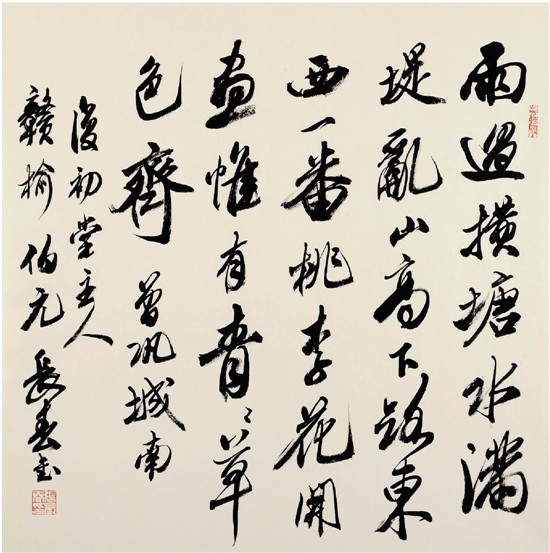 雨過橫塘水滿
堤亂山高下路東
西一番桃李花開
盡惟有青〻草
色齊 曾巩城南
復初堂主人
贛榆伯元長春